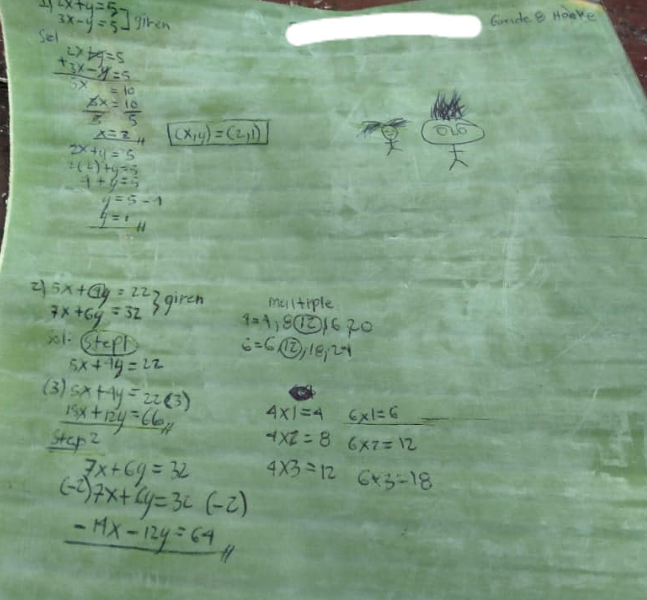 1) 2x+y=5
3x-y=5 } given
Grade 8 Hooke
Sol
2x+y=5
+ 3x-y=5
5x = 10
5x = 10
5 5
x=2
(x,y)=(2,1)
2x+y=5
2(2)+y=5
4+y=5
y=5-4
y=1
2) 5x+4y=22
7x+6y=32 } given
multiple
4=4,8,12,16,20
6=6,12,18,24
sol. Step1
5x+4y=22
(3)5x+4y=22(3)
15x+12y=66
4x1=4 6x1=6
4x2=8 6x2=12
4x3=12 6x3=18
Step 2
7x+6y=32
(-2)7x+6y=32(-2)
-14x-12y=64